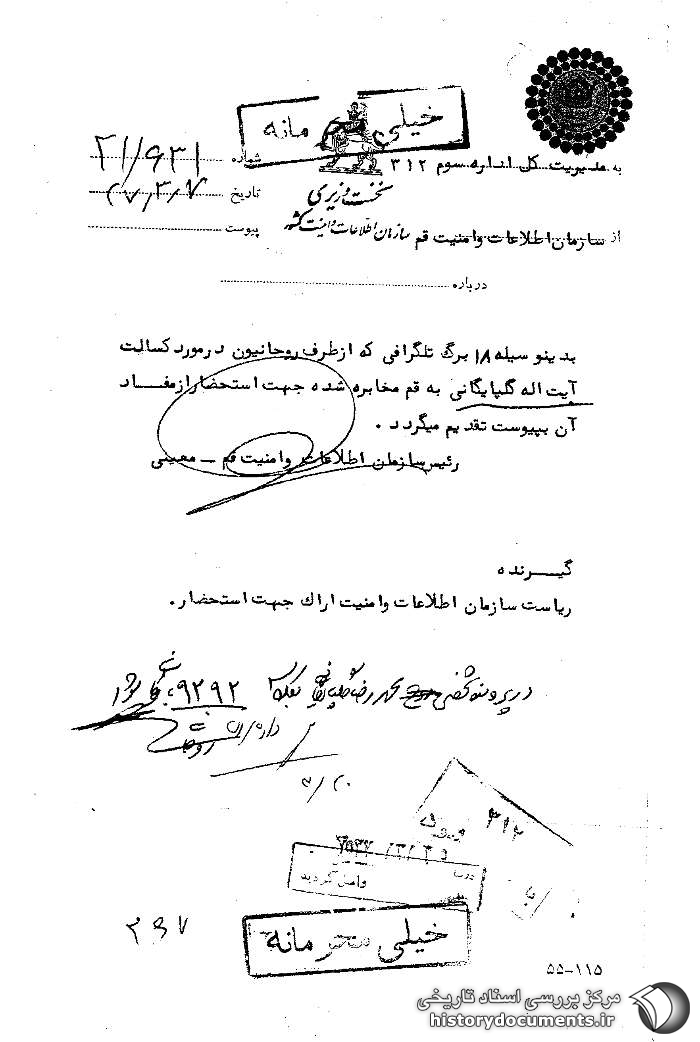 خیلی محرمانه
به مدیریت کل اداره سوم ۳۱۲
شماره ۲۱/۶۳۱
نخست وزیری
تاریخ ۲۷/۳/۷
سازمان اطلاعات و امنیت کشور
از سازمان اطلاعات وامنیت قم
پیوست
درباره
بدینوسیله ۱۸ برگ تلگرافی که ازطرف روحانیون درمورد کسالت
آیت اله گلپایگانی به قم مخابره شده جهت استحضار ازمفاد
آن بپیوست تقدیم میگردد .
رئیس سازمان اطلاعات وامنیت قم - معینی
گیرنده
ریاست سازمان اطلاعات وامنیت اراک جهت استحضار .
در پرونده محمد رضا گلپایگانی بکلاسه ۹۲۹۲
۳/۲۰
۳۱۲
واصل گردید
خیلی محرمانه
۲۶۷
۵۵-۱۱۵
مرکز بررسی اسناد تاریخی
historydocuments.ir